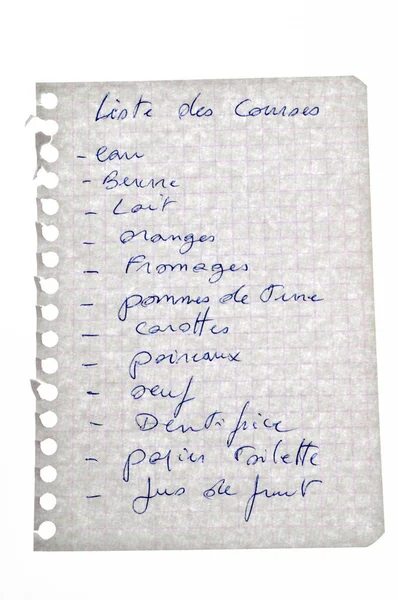 Liste des Courses
- eau
- Beurre
- Lait
- oranges
- Fromages
- pommes de Terre
- carottes
- poireaux
- oeuf
- Dentifrice
- papier Toilette
- Jus de fruit